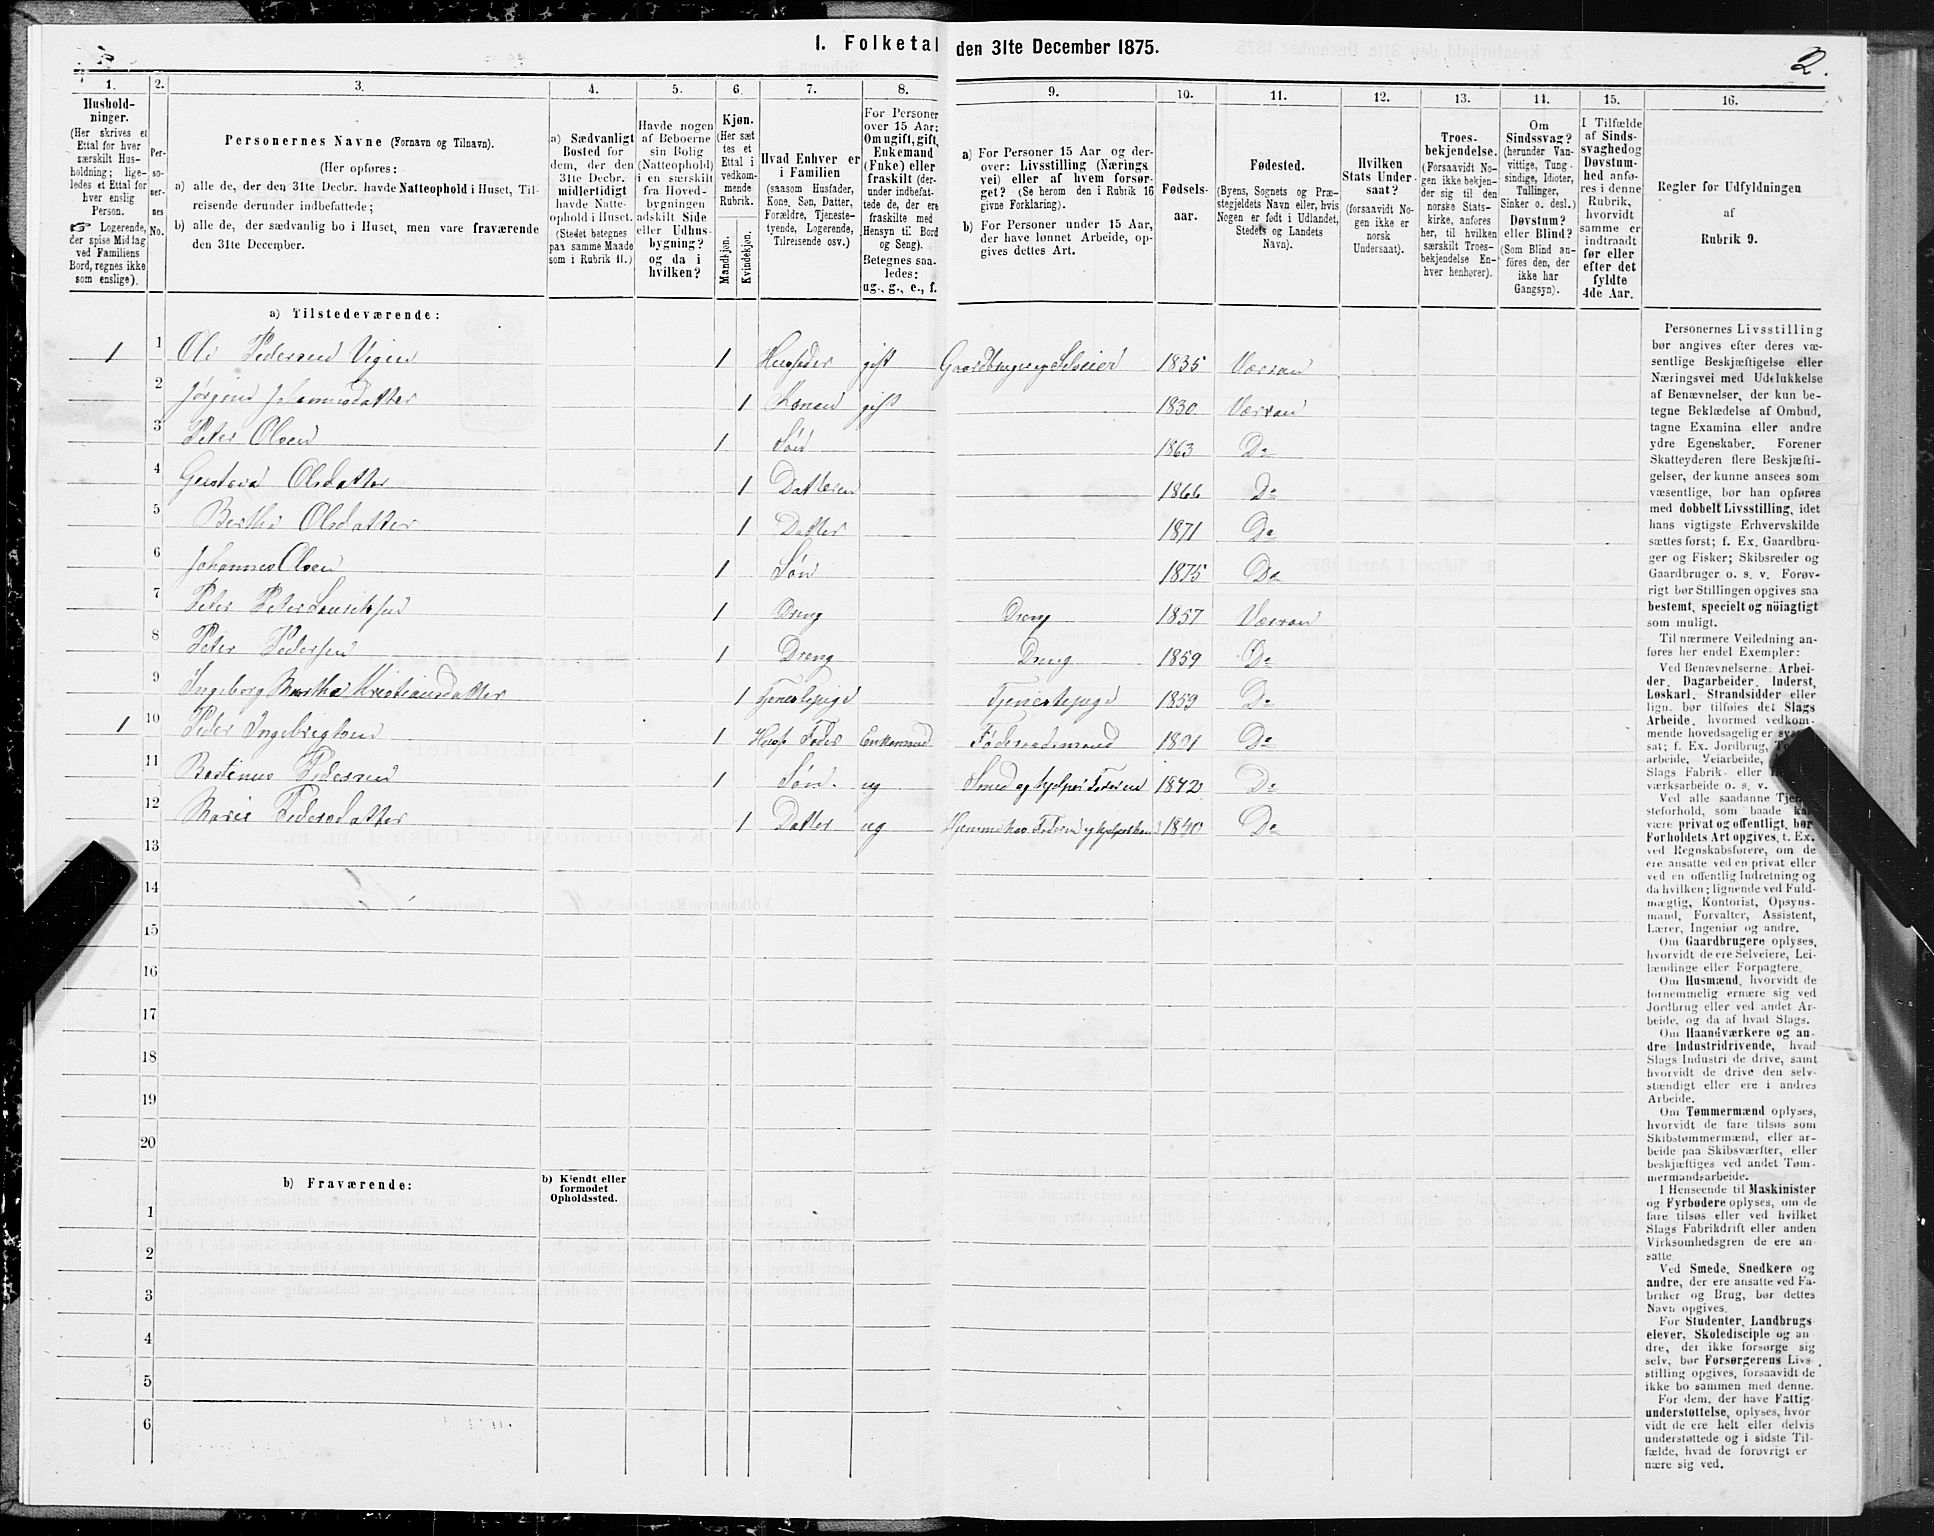 I. Folketal den 31te December 1875.
2.
1. 2. 3. 4. 5. 6. 7. 8. 9. 10. 11. 12. 13. 14. 15. 16.
Hushold-
ninger.
(Her skrives et
Ettal for hver
særskilt Hus-
holdning; lige-
ledes et Ettal for
hver enslig
Person.
☞ Logerende,
der spise Middag
ved Familiens
Bord, regnes ikke
som enslige).
Per-
so-
ner-
nes
No.
Personernes Navne (Fornavn og Tilnavn).
(Her opføres:
a) alle de, der den 31te Decbr. havde Natteophold i Huset, Til-
reisende derunder indbefattede;
b) alle de, der sædvanlig bo i Huset, men vare fraværende
den 31te December.
a) Sædvanligt
Bosted for
dem, der den
31te Decbr.
midlertidigt
havde Natte-
ophold i Huset.
(Stedet betegnes
paa samme Maade
som i Rubrik 11.)
Havde nogen
af Beboerne
sin Bolig
(Natteophold)
i en særskilt
fra Hoved-
bygningen
adskilt Side
eller Udhus-
bygning?
og da i
hvilken?
Kjøn.
(Her sæt
tes et
Ettal i
vedkom-
mende
Rubrik.
Mandkjøn.
Kvindekjøn.
Hvad Enhver er
i Familien
(saasom Husfader,
Kone, Søn, Datter,
Forældre, Tjeneste-
tyende, Logerende,
Tilreisende osv.)
For Personer
over 15 Aar:
Om ugift, gift,
Enkemand
(Enke) eller
fraskilt (der-
under indbefat-
tede de, der ere
fraskilte med
Hensyn til Bord
og Seng).
Betegnes saa-
ledes:
ug., g., e., f.
a) For Personer 15 Aar og der-
over: Livsstilling (Nærings
vei) eller af hvem forsør-
get? (Se herom den i Rubrik 16
givne Forklaring).
b) For Personer under 15 Aar,
der have lønnet Arbeide, op-
gives dettes Art.
Fødsels-
aar.
Fødested.
(Byens, Sognets og Præ-
stegjeldets Navn eller, hvis
Nogen er født i Udlandet,
Stedets og Landets
Navn).
Hvilken
Stats Under-
saat?
(forsaavidt No-
gen ikke er
norsk
Undersaat).
Troes-
bekjendelse.
(Forsaavidt No-
gen ikke bekjen-
der sig til den
norske Stats-
kirke, anføres
her, til hvilken
særskilt Troes-
bekjendelse En-
hver henhører).
Om
Sindssvag?
(herunder Van-
vittige, Tung-
sindige, Idioter,
Tullinger,
Sinker o. desl.)
Døvstum?
eller Blind?
(Som Blind an-
føres den, der
ikke har
Gangsyn).
I Tilfælde
af Sinds-
svaghed og
Døvstum-
hed anfø-
res i denne
Rubrik,
hvorvidt
samme er
indtraadt
før eller
efter det
fyldte
4de Aar.
Regler for Udfyldningen
af
Rubrik 9.
a) Tilstedeværende:
1 1 Ole Pedersen Vigen 1 Husfader gift Gaardbruger og Selveier 1835 Værran
2 Jørgine Johannesdatter 1 Konen gift 1830 Værran
3 Peter Olsen 1 Søn 1863 Do
4 Gustava Olsdatter 1 Datteren 1866 Do
5 Bertha Olsdatter 1 Datter 1871 Do
6 Johannes Olsen 1 Søn 1875 Do
7 Peter 1 Dreng Dreng 1857 Værran
8 Peter Pedersen 1 Dreng Dreng 1859 Do
9 Ingeborg Martha Kristiansdatter 1 Tjenestepige Tjenestepige 1859 Do
1 10 Peder Ingebrigtsen 1 Husf Fader Enkemand Føderaadsmand 1801 Do
11 Bastinus Pedersen 1 Søn. ug Smed og hjelper Faderen 1842 Do
12 Maria Pedersdatter 1 Datter ug Hjemme hos Faderen og hjelper ham 1840 Do
13
14
15
16
17
18
19
20
b) Fraværende:
b) Kjendt eller
formodet
Opholdssted.
1
2
3
4
5
6
Personernes Livsstilling
bør angives efter deres væ-
sentlige Beskjæftigelse eller
Næringsvei med Udelukkelse
af Benævnelser, der kun be-
tegne Beklædelse af Ombud,
tagne Examina eller andre
ydre Egenskaber. Forener
Skatteyderen flere Beskjæfti-
gelser, der kunne ansees som
væsentlige, bør han opføres
med dobbelt Livsstilling, idet
hans vigtigste Erhvervskilde
sættes først; f. Ex. Gaardbru-
ger og Fisker; Skibsreder og
Gaardbruger o. s. v. Forøv-
rigt bør Stillingen opgives saa
bestemt, specielt og nöiagtigt
som muligt.
Til nærmere Veiledning an-
føres her endel Exempler:
Ved Benævnelserne: Arbei-
der, Dagarbeider, Inderst,
Løskarl, Strandsidder eller
lign. bør tilføies det Slags
Arbeide, hvormed vedkom-
mende hovedsagelig er
sat; f. Ex. Jordbrug,
arbeide, Veiarbeide,
Slags Fabrik- eller
værksarbeide o. s. v.
Ved alle saadanne
steforhold, som baade
være privat og offentligt, bør
Forholdets Art opgives, t. Ex.
ved Regnskabsførere, om de
ere ansatte ved en privat eller
ved en offentlig Indretning og
da hvilken; lignende ved Fuld-
mægtig, Kontorist, Opsyns-
mand, Forvalter, Assistent,
Lærer, Ingeniør og andre.
Om Gaardbrugere oplyses,
hvorvidt de ere Selveiere, Lei-
lændinge eller Forpagtere.
Om Husmænd, hvorvidt de
fornemmelig ernære sig ved
Jordbrug eller ved andet Ar-
beide, og da af hvad Slags.
Om Haandværkere og an-
dre Industridrivende, hvad
Slags Industri de drive, samt
hvorvidt de drive den selv-
stændigt eller ere i andres
Arbeide.
Om Tømmermænd oplyses,
hvorvidt de fare tilsøs som
Skibstømmermænd, eller ar-
beide paa Skibsværfter, eller
beskjæftiges ved andet Tøm-
mermandsarbeide.
I Henseende til Maskinister
og Fyrbødere oplyses, om de
fare tilsøs eller ved hvilket
Slags Fabrikdrift eller anden
Virksomhedsgren de ere an-
satte.
Ved Smede, Snedkere og
andre, der ere ansatte ved Fa-
briker og Brug, bør dettes
Navn opgives.
For Studenter, Landbrugs-
elever, Skoledisciple og an
dre, der ikke forsørge sig
selv, bør Forsørgerens Livs-
stilling opgives, forsaavidt de
ikke bo sammen med denne.
For dem, der have Fattig-
understøttelse, oplyses, hvor
vidt de ere helt eller delvis
understøttede og i sidste Til-
fælde, hvad de forøvrigt er
nære sig ved.